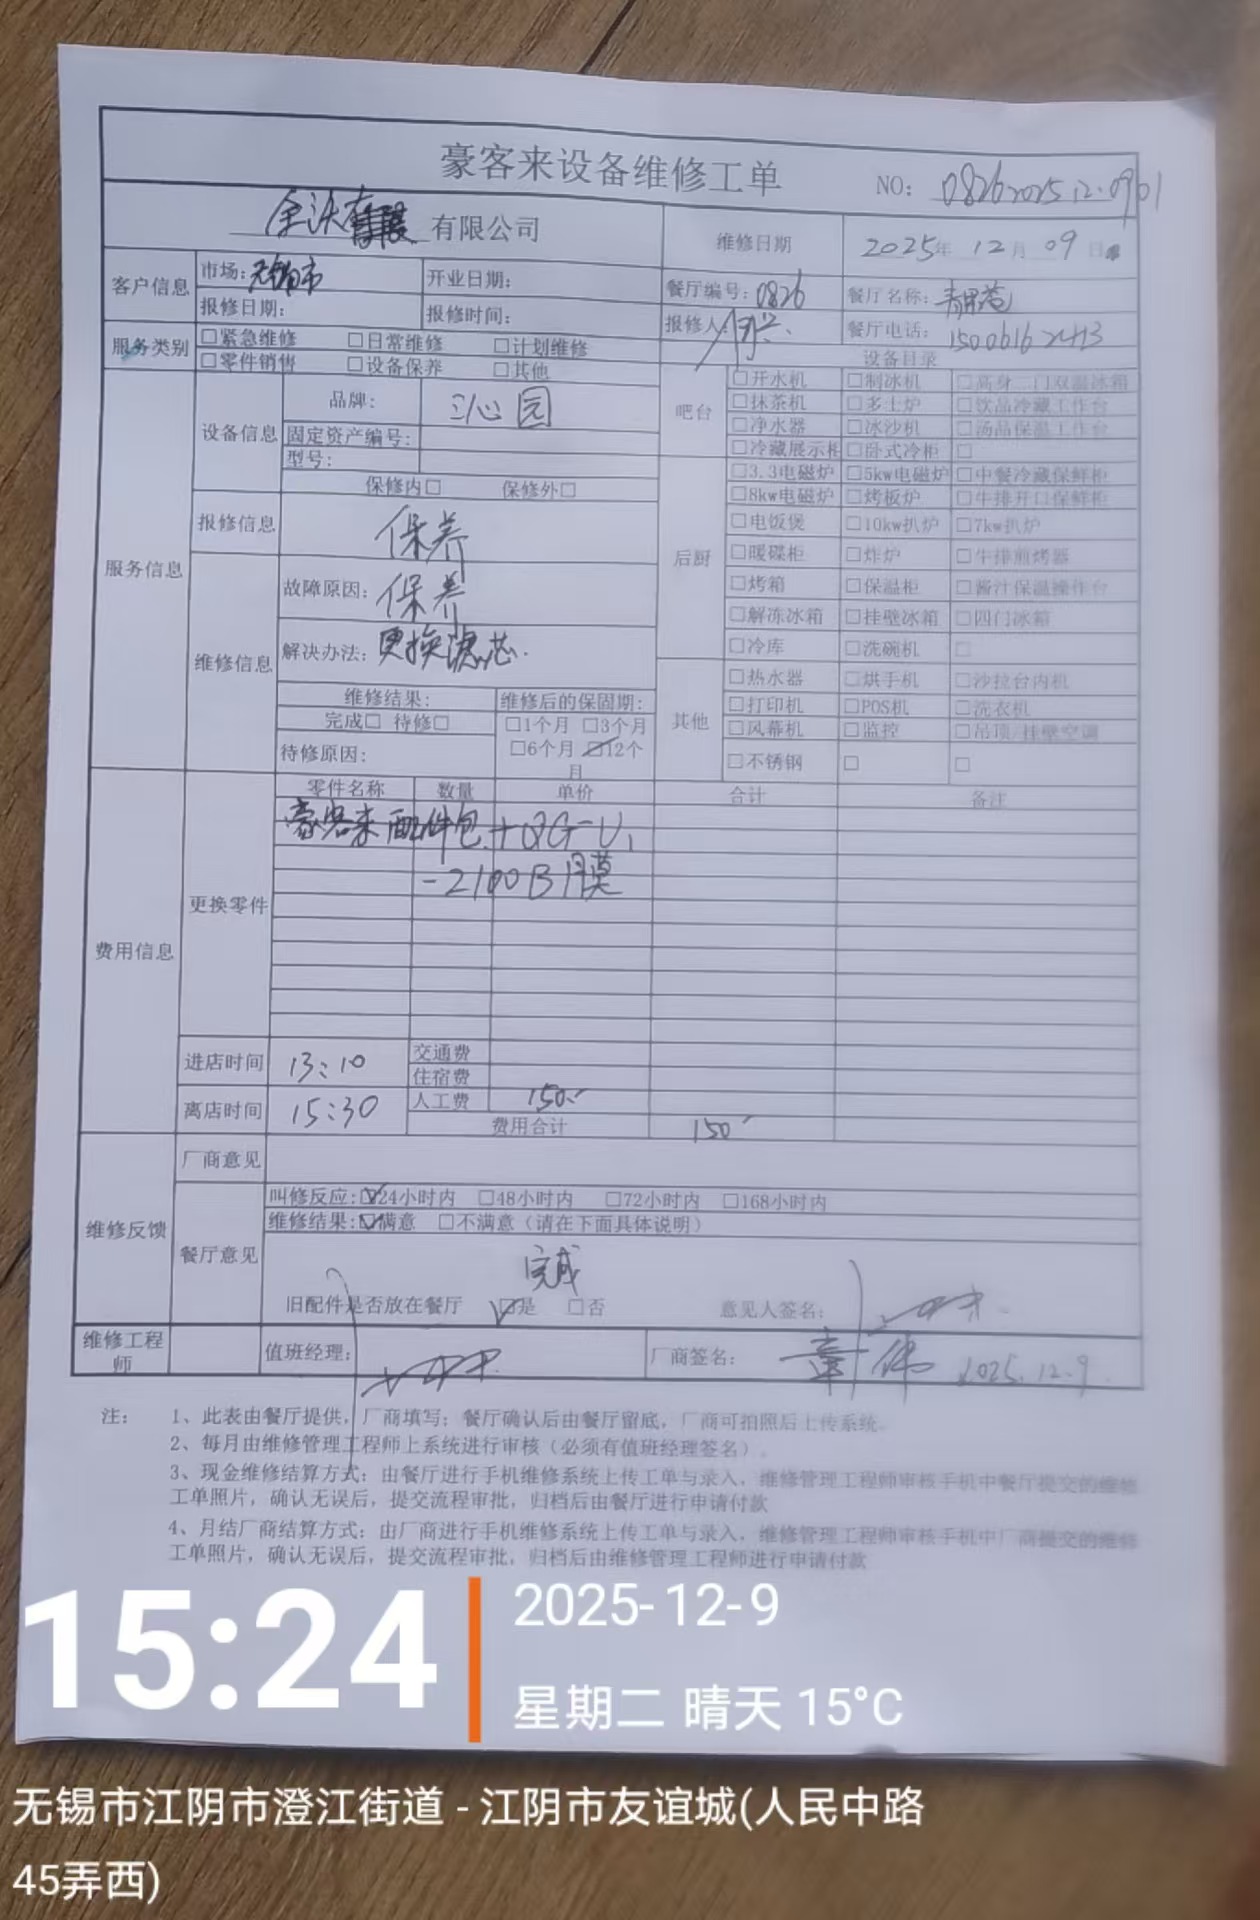 豪客来设备维修工单 NO: 0826 2025.12.0901
有限公司 维修日期 2025年 12月 09日
客户信息 市场: 无锡市 开业日期: 餐厅编号: 0826 餐厅名称:
报修日期: 报修时间: 报修人: 餐厅电话: 15006162413
服务类别 □紧急维修 □日常维修 □计划维修 设备目录
□零件销售 □设备保养 □其他
服务信息 设备信息 品牌: 沁园
固定资产编号:
型号:
保修内□ 保修外□
报修信息 保养
维修信息 故障原因: 保养
解决办法: 更换滤芯.
维修结果: 维修后的保固期:
完成□ 待修□ □1个月 □3个月
待修原因: □6个月 ☑12个月
吧台 □开水机 □制冰机 □高身二门双温冰箱
□抹茶机 □多士炉 □饮品冷藏工作台
□净水器 □冰沙机 □汤品保温工作台
□冷藏展示柜 □卧式冷柜 □
后厨 □3.3电磁炉 □5kw电磁炉 □中餐冷藏保鲜柜
□8kw电磁炉 □烤板炉 □牛排开口保鲜柜
□电饭煲 □10kw扒炉 □7kw扒炉
□暖碟柜 □炸炉 □牛排煎烤器
□烤箱 □保温柜 □酱汁保温操作台
□解冻冰箱 □挂壁冰箱 □四门冰箱
□冷库 □洗碗机 □
其他 □热水器 □烘手机 □沙拉台内机
□打印机 □POS机 □洗衣机
□风幕机 □监控 □吊顶/挂壁空调
□不锈钢 □ □
费用信息 更换零件 零件名称 数量 单价 合计 备注
豪客来配件包+QG-U1
-2100B膜
进店时间 13:10 交通费
住宿费
离店时间 15:30 人工费 150.-
费用合计 150-
维修反馈 厂商意见
餐厅意见 叫修反应: ☑24小时内 □48小时内 □72小时内 □168小时内
维修结果: ☑满意 □不满意（请在下面具体说明）
完成
旧配件是否放在餐厅 ☑是 □否 意见人签名:
维修工程师 值班经理: 厂商签名: 章伟 2025.12.9
注: 1、此表由餐厅提供，厂商填写；餐厅确认后由餐厅留底，厂商可拍照后上传系统。
2、每月由维修管理工程师上系统进行审核（必须有值班经理签名）。
3、现金维修结算方式：由餐厅进行手机维修系统上传工单与录入，维修管理工程师审核手机中餐厅提交的维修
工单照片，确认无误后，提交流程审批，归档后由餐厅进行申请付款
4、月结厂商结算方式：由厂商进行手机维修系统上传工单与录入，维修管理工程师审核手机中厂商提交的维修
工单照片，确认无误后，提交流程审批，归档后由维修管理工程师进行申请付款
15:24
2025-12-9
星期二 晴天 15°C
无锡市江阴市澄江街道 - 江阴市友谊城(人民中路
45弄西)